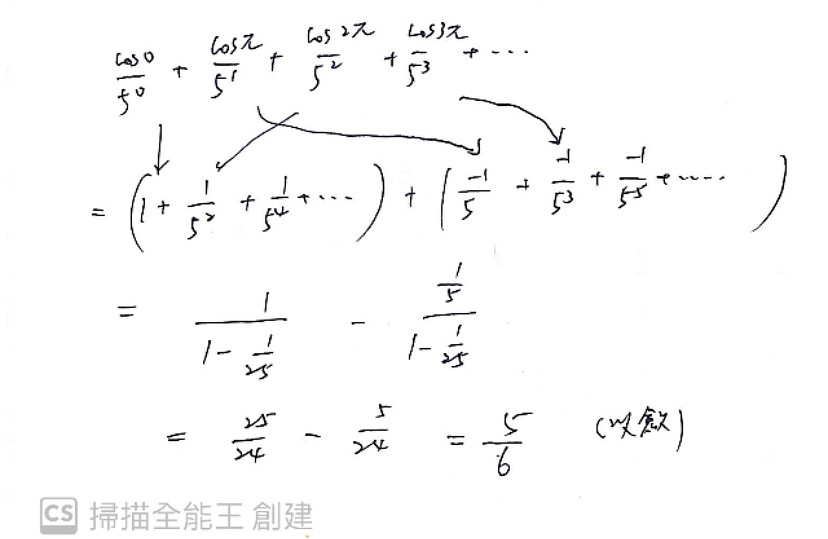 cos0/5⁰ + cosπ/5¹ + cos2π/5² + cos3π/5³ + ⋯
= (1 + 1/5² + 1/5⁴ + ⋯) + (-1/5 + -1/5³ + -1/5⁵ + ⋯)
= 1/(1 - 1/25) - (1/5)/(1 - 1/25)
= 25/24 - 5/24 = 5/6 (收斂)
CS 掃描全能王 創建